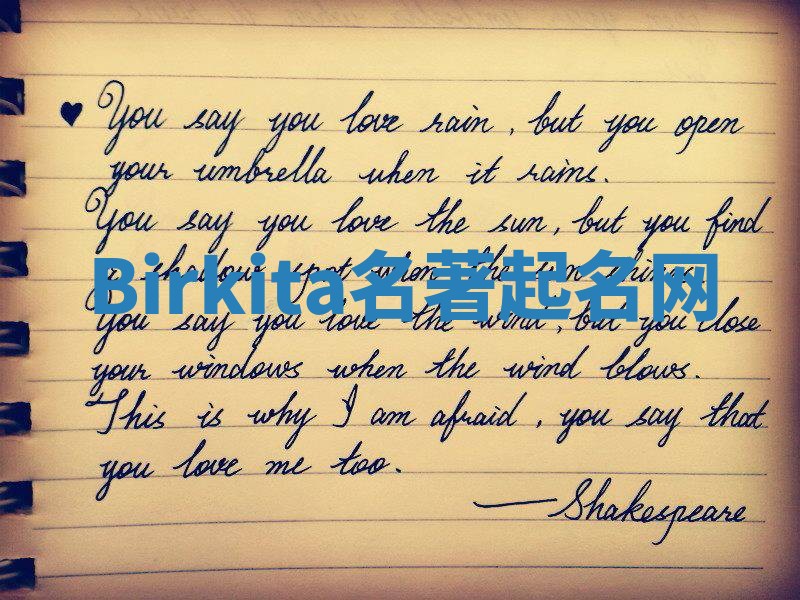 ♥ You say you love rain, but you open
your umbrella when it rains.
You say you love the sun, but you find
a shadow spot when the sun shines.
Birkita名著起名网
You say you love the wind, but you close
your windows when the wind blows.
This is why I am afraid, you say that
you love me too.
—Shakespeare